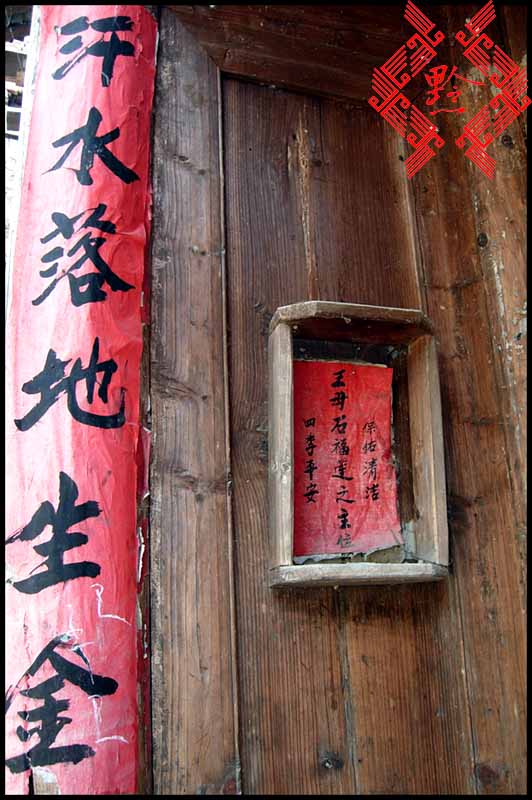 汗水落地生金
保祐清洁
王母石福莲之主位
四季平安
黔